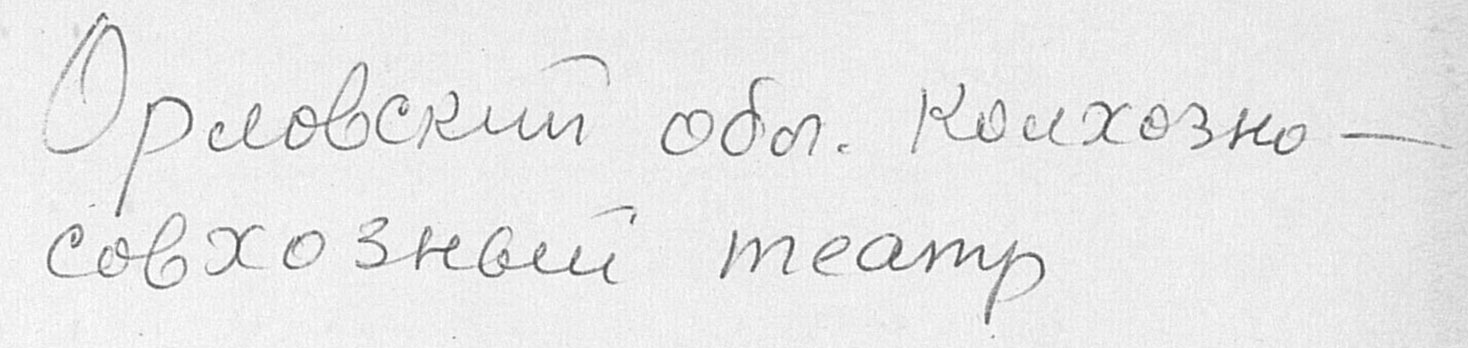 Орловский обл. колхозно —
совхозный театр